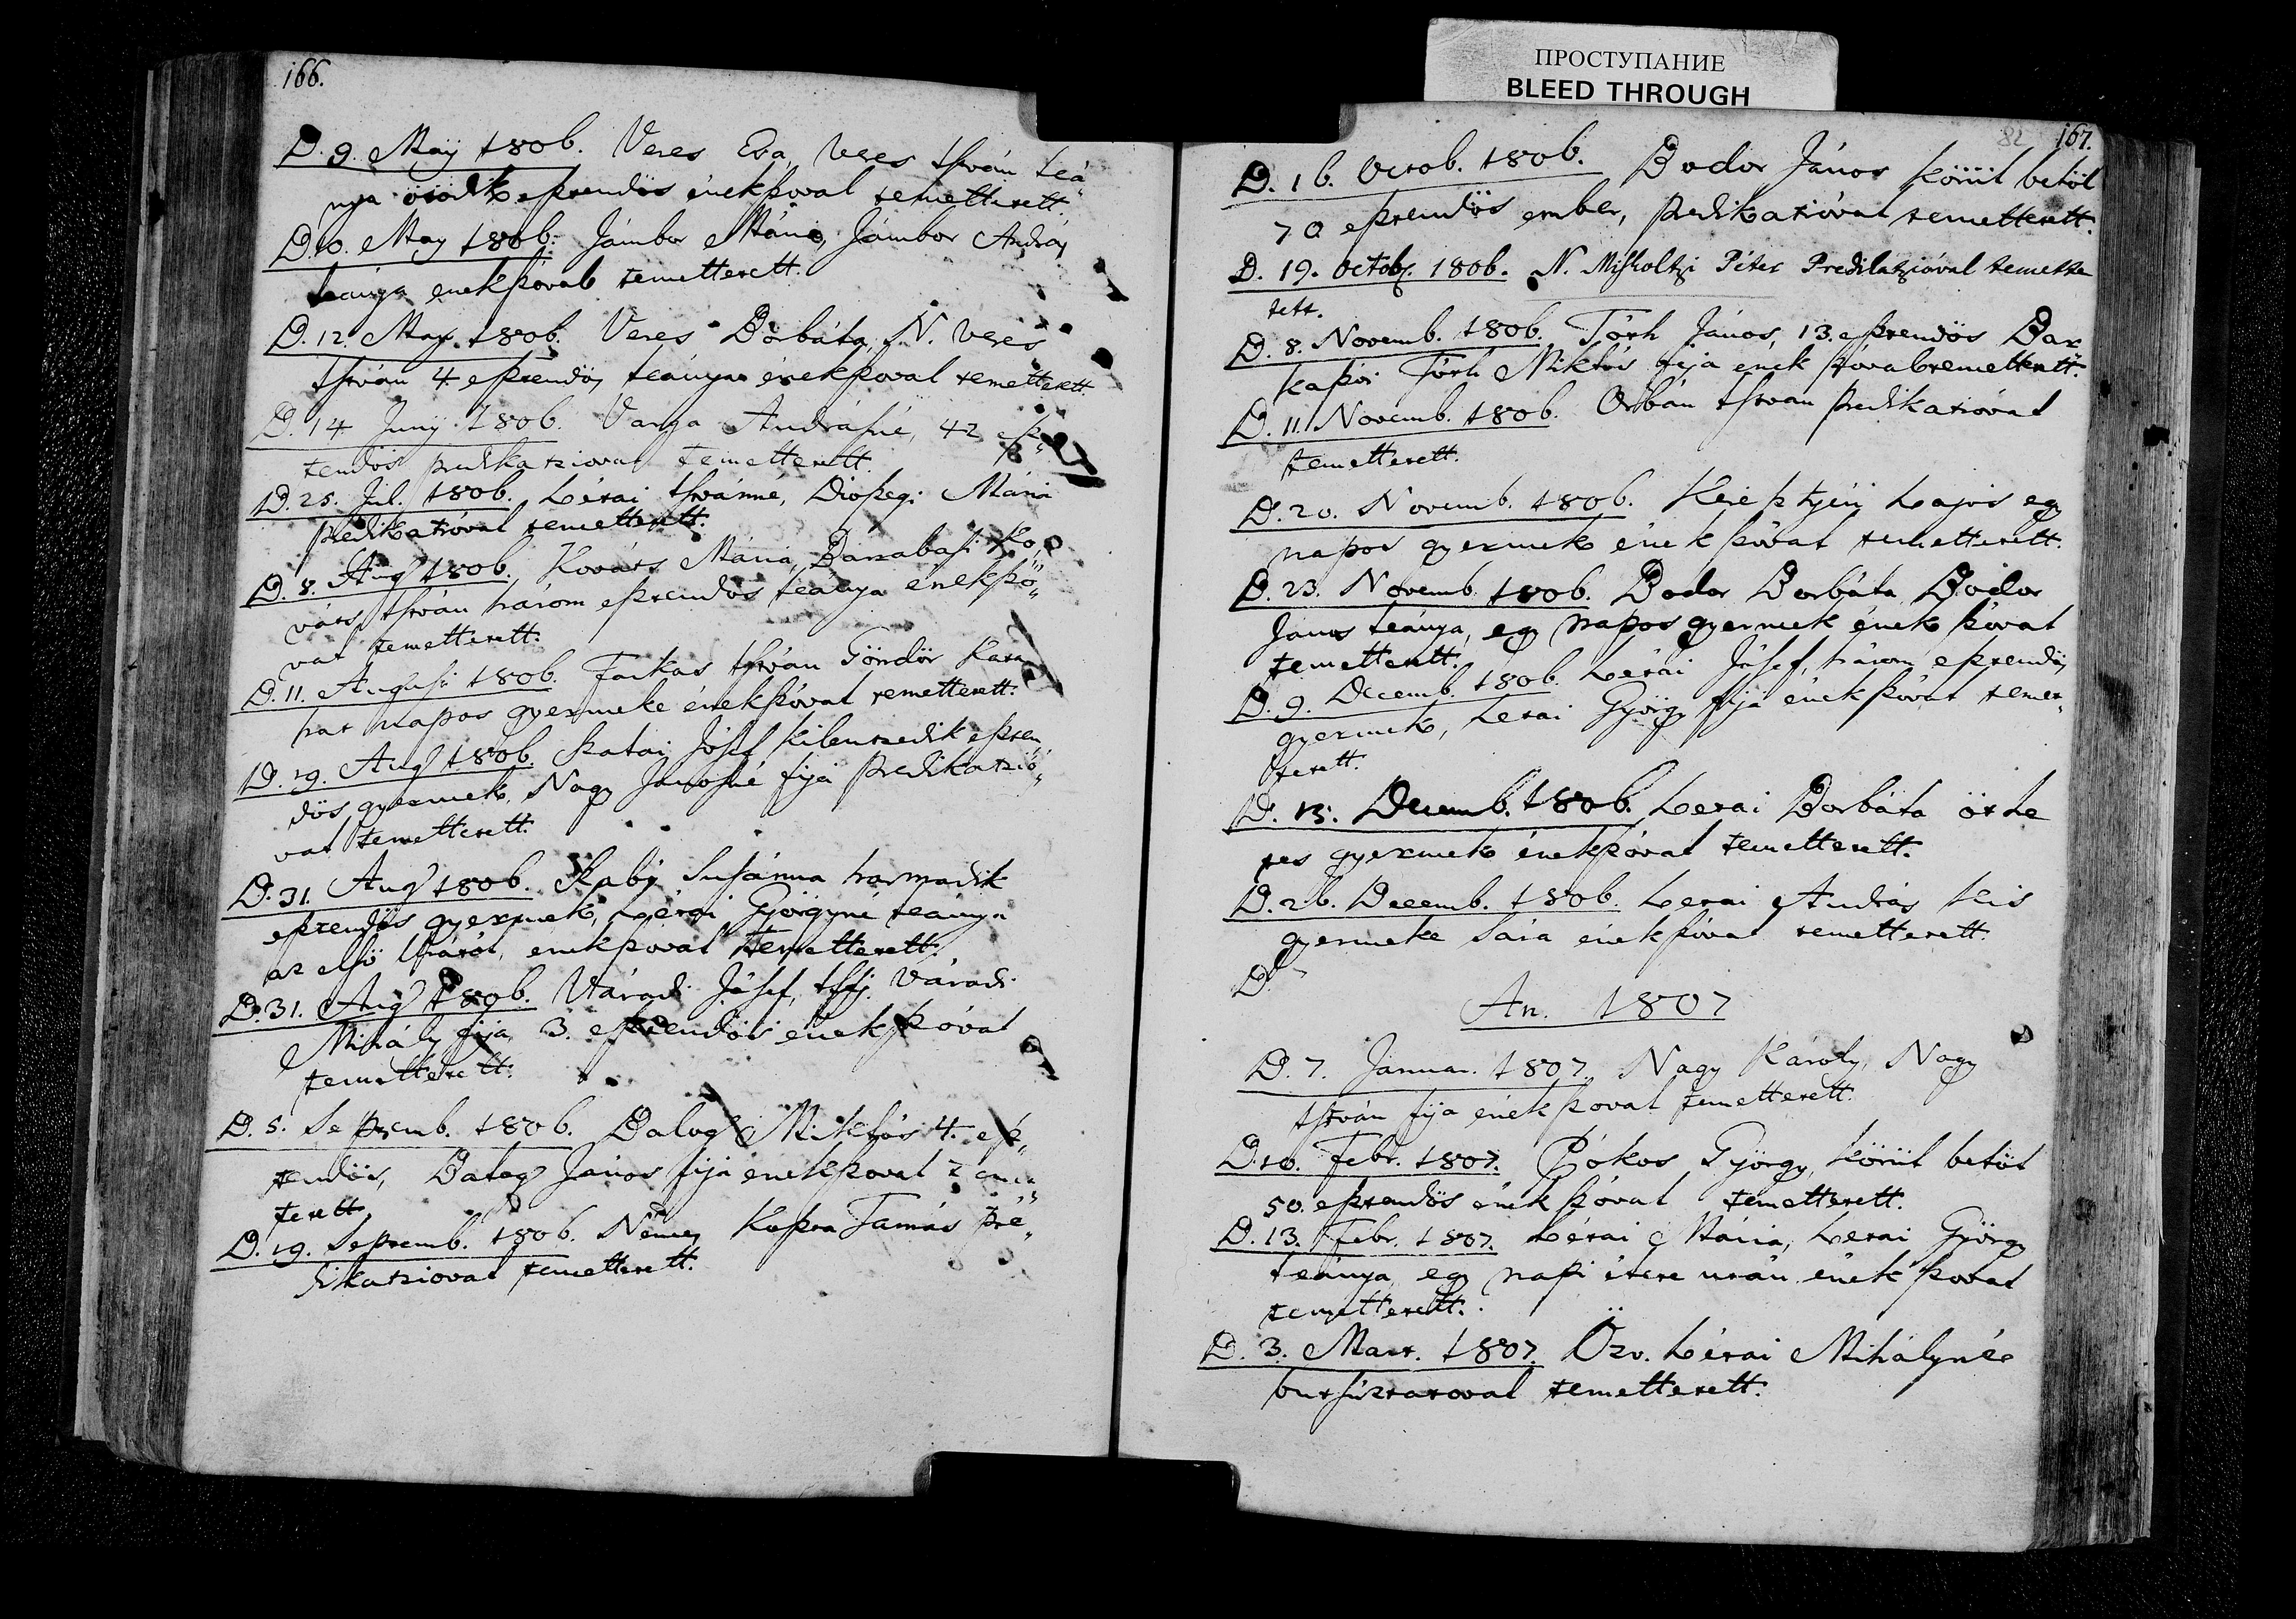 ПРОСТУПАНИЕ
BLEED THROUGH
166.
D. 9. Maÿ 1806. Veres Éva, Veres István leá„
nya ötödik esztendös énekszoval temettetett.
D. 10. May 1806. Jámbor Mária, Jámbor András
leánya énekszóval temettetett.
D. 12. May 1806. Veres Borbála, N. Veres
István 4 esztendös leánya énekszoval temettetett.
D. 14 Junÿ 1806. Varga Andrásné, 42 esz„
tendös predikatzioval temettetett.
D. 25. Jul. 1806. Lévai Istvánné, Dioszegi Mária
predikatzióval temettetett.
D. 8. Aug 1806. Kováts Mária, Barabasi Ko„
váts István három esztendös leánya énekszó„
val temettetett.
D. 11. Augusti 1806. Farkas István Göndör
hat napos gyermeke énekszóval temettetett.
D. 19. Aug 1806. Katai Jósef kilentzedik eszten
dös gyermek, Nagy Jánosné fija predikatzió„
val temettetett.
D. 31. Aug 1806. Susánna harmadik
esztendös gyermek, Lévai Györgyné leánya
az elsö Urától, énekszoval temettetett.
D. 31. Aug 1806. Váradi Jósef, Ifj. Váradi
Mihály fija, 3. esztendös énekszóval
temettetett.
D. 5. Septemb. 1806. Balog Miklós 4. esz„
tendös, Balog János fija énekszoval temet„
tetett.
D. 19. Septemb. 1806. Nemes Tamás pré„
dikatzioval temettetett.
82 167.
D. 16. Octob. 1806. Bodor János körül belöl
70 esztendös ember, predikatzióval temettetett.
D. 19. Octobr. 1806. N. Miskoltzi Péter Predikatzióval temette
tett.
D. 8. Novemb. 1806. Tóth János, 13. esztendös Bar
Tóth Miklós fija ének szóval temettetett.
D. 11. Novemb. 1806. Orbán István predikatzióval
temettetett.
D. 20. Novemb. 1806. Lajos egy
napos gyermek ének szóval temettetett.
D. 23. Novemb. 1806. Bodor Borbála Bodor
János leánya, egy napos gyermek ének szóval
temettetett.
D. 9. Decemb. 1806. Lévai Jósef, három esztendös
gyermek, Levai György fija énekszóval temet„
tetett.
D. 13. Decemb. 1806. Levai Borbála öt he
tes gyermek énekszóval temettetett.
D. 26. Decemb. 1806. Levai András kis
gyermeke Sára énekszóval temettetett.
D
An. 1807
D. 7. Januar. 1807. Nagy Károly, Nagy
István fija énekszoval temettetett.
D. 10. Febr. 1807. Pókos György, körül belöl
50. esztendös ének szóval temettetett.
D. 13. Febr. 1807. Lévai Mária, Levai György
leánya, egy napi élete után ének szoval
temettetett.
D. 3. Mart. 1807. Özv. Lévai Mihályné
butsúztatoval temettetett.